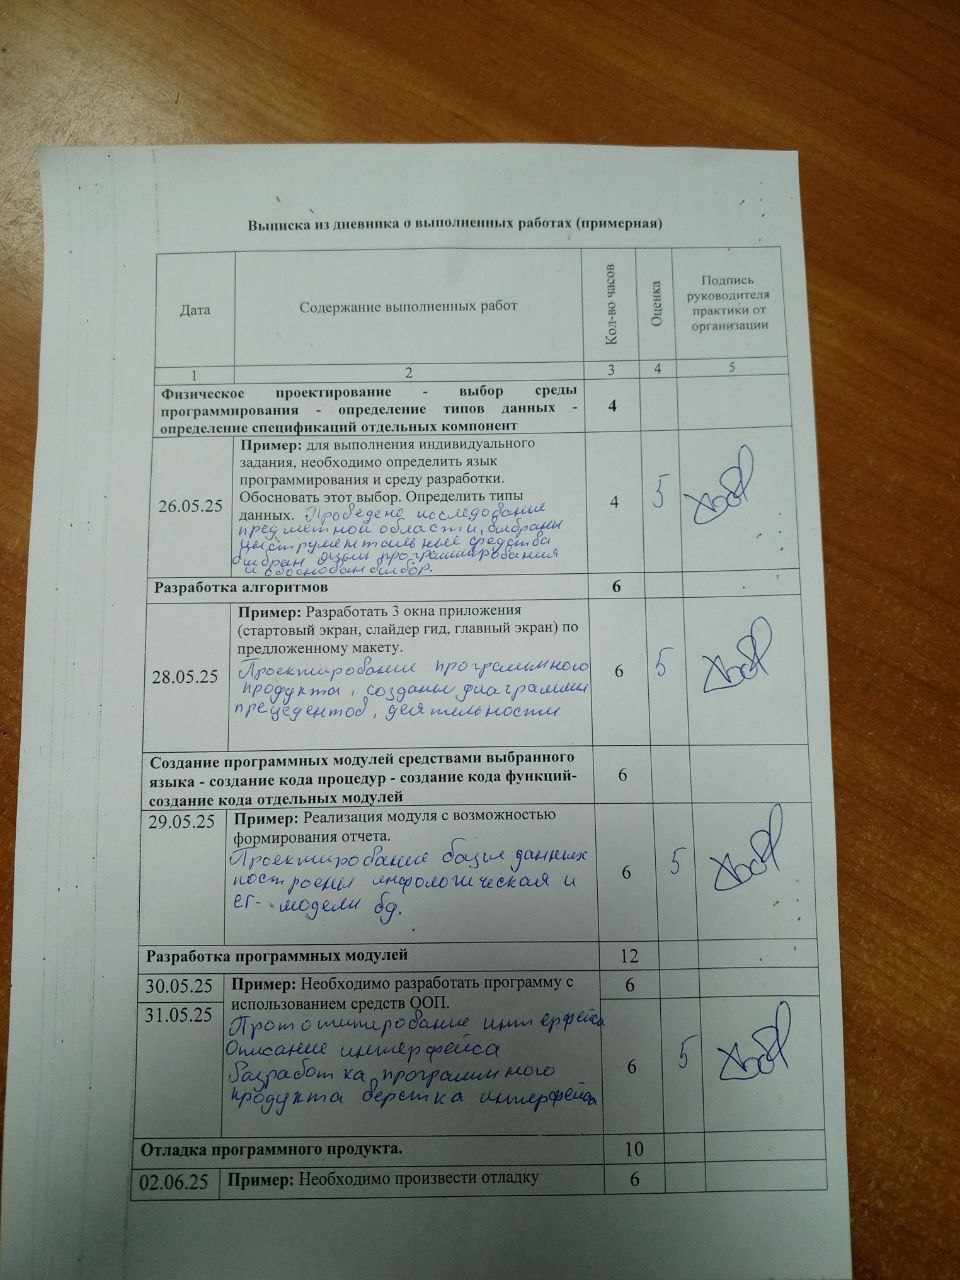 Выписка из дневника о выполненных работах (примерная)
Дата
Содержание выполненных работ
Кол-во часов
Оценка
Подпись
руководителя
практики от
организации
1 2 3 4 5
Физическое проектирование - выбор среды
программирования - определение типов данных -
определение спецификаций отдельных компонент
4
26.05.25
Пример: для выполнения индивидуального
задания, необходимо определить язык
программирования и среду разработки.
Обосновать этот выбор. Определить типы
данных. Проведено исследование
предметной области, выбраны
инструментальные средства
выбран язык программирования
и обоснован выбор.
4 5
Разработка алгоритмов 6
28.05.25
Пример: Разработать 3 окна приложения
(стартовый экран, слайдер гид, главный экран) по
предложенному макету.
Проектирование программного
продукта, созданы диаграммы
прецедентов, деятельности
6 5
Создание программных модулей средствами выбранного
языка - создание кода процедур - создание кода функций-
создание кода отдельных модулей
6
29.05.25
Пример: Реализация модуля с возможностью
формирования отчета.
Проектирование базы данных
построены инфологическая и
ег- модели бд.
6 5
Разработка программных модулей 12
30.05.25
31.05.25
Пример: Необходимо разработать программу с
использованием средств ООП.
Прототипирование интерфейса
Описание интерфейса
Разработка программного
продукта верстка интерфейса
6
6 5
Отладка программного продукта. 10
02.06.25 Пример: Необходимо произвести отладку 6